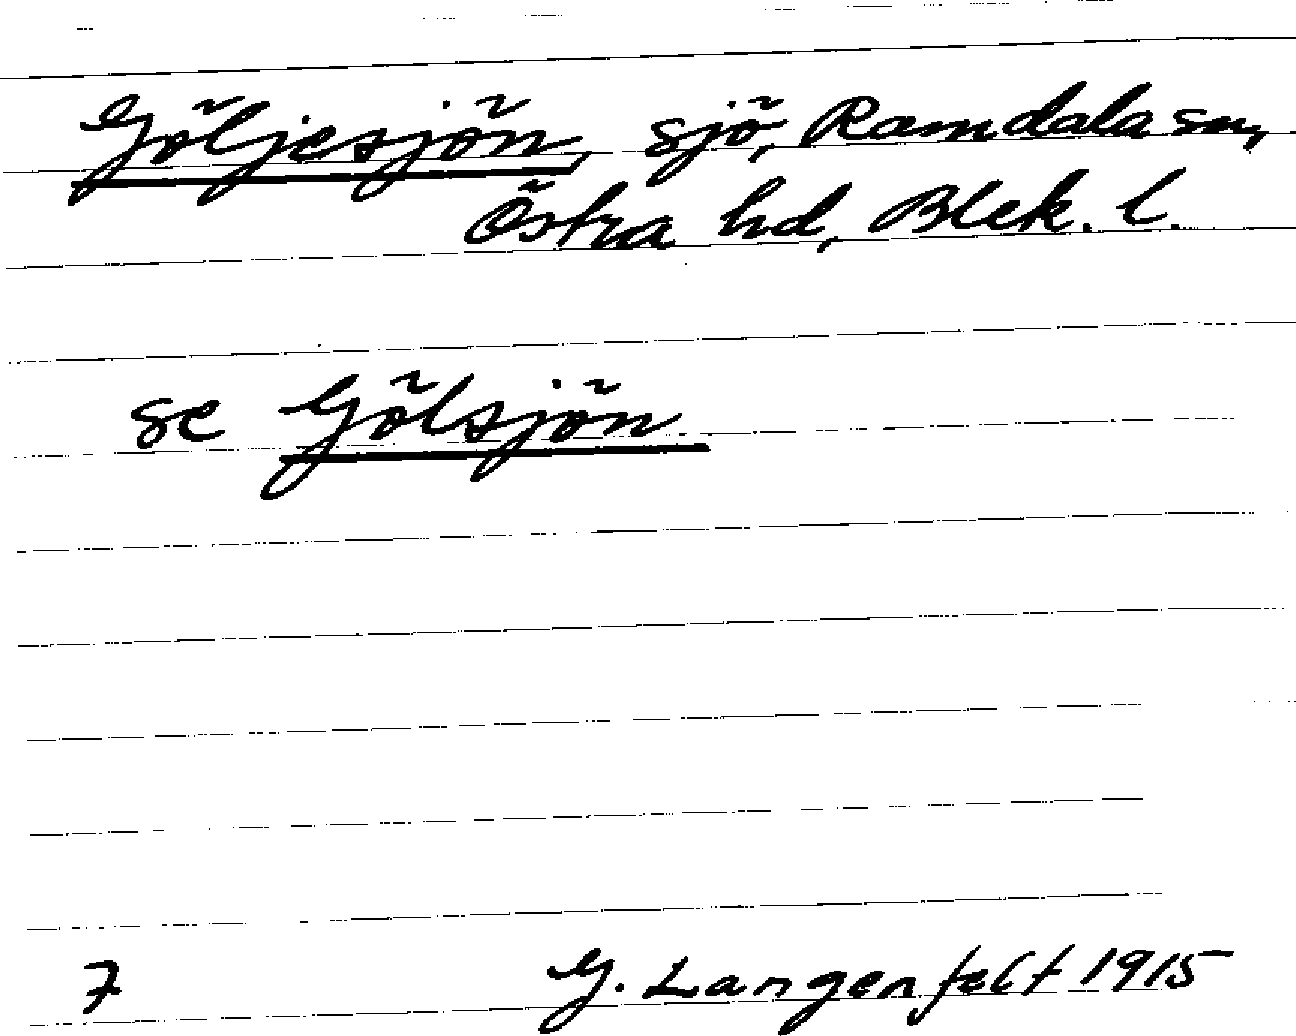 Göljesjön, sjö, Ramdala sn,
Östra hd, Blek. l.
se Gölsjön
7 G. Langenfelt 1915